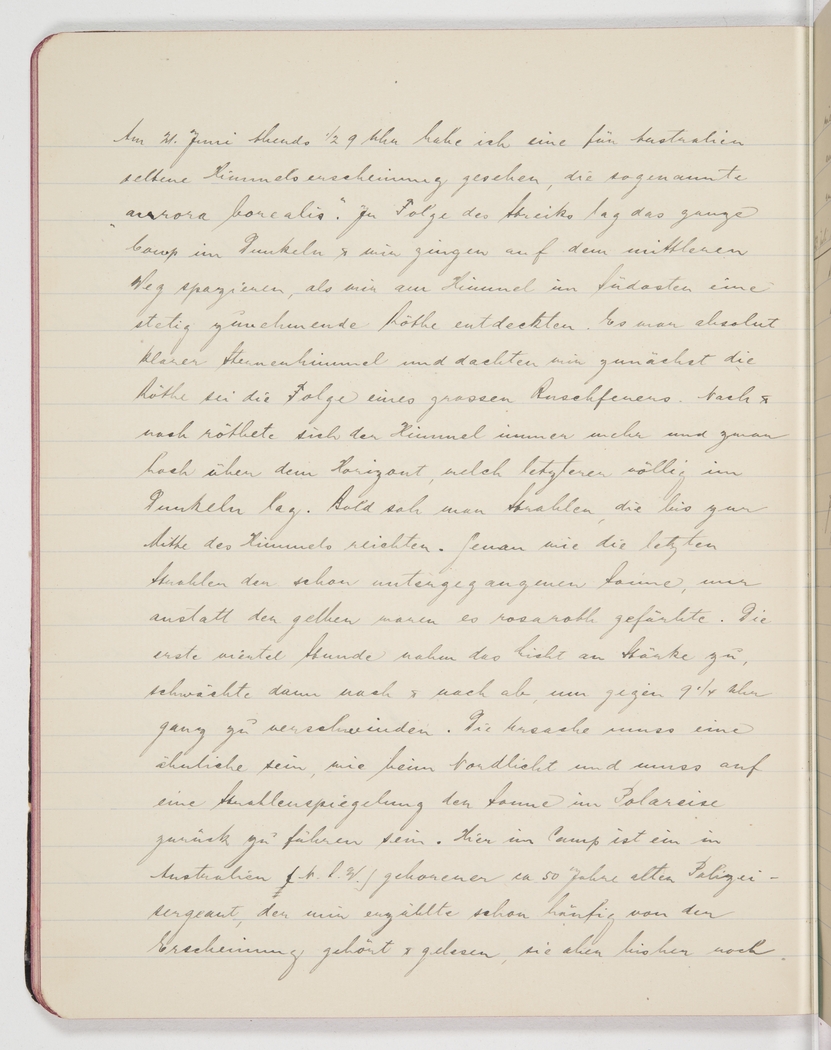 Am 21. Juni Abends 1/2 9 Uhr habe ich eine für Australien
seltene Himmelserscheinung gesehen, die sogenannte
"aurora borealis". In Folge des Streiks lag das ganze
Camp im Dunkeln & wir gingen auf dem mittleren
Weg spazieren, als wir am Himmel im Südosten eine
stetig zunehmende Röthe entdeckten. Es war absolut
klarer Sternenhimmel und dachten wir zunächst die
Röthe sei die Folge eines grossen Buschfeuers. Nach &
nach röthete sich der Himmel immer mehr und zwar
hoch über dem Horizont, welch letzterer völlig im
Dunkeln lag. Bald sah man Strahlen, die bis zur
Mitte des Himmels reichten. Genau wie die letzten
Strahlen der schon untergegangenen Sonne, nur
anstatt der gelben waren es rosaroth gefärbte. Die
erste viertel Stunde nahm das Licht an Stärke zu,
schwächte dann nach & nach ab, um gegen 9 1/4 Uhr
ganz zu verschwinden. Die Ursache muss eine
ähnliche sein, wie beim Nordlicht und muss auf
eine Strahlenspiegelung der Sonne im Polareise
zurück zu führen sein. Hier im Camp ist ein in
Australien (N.S.W.) geborener ca 50 Jahre alter Polizei-
sergeant, der mir erzählte schon häufig von der
Erscheinung gehört & gelesen, sie aber bisher noch